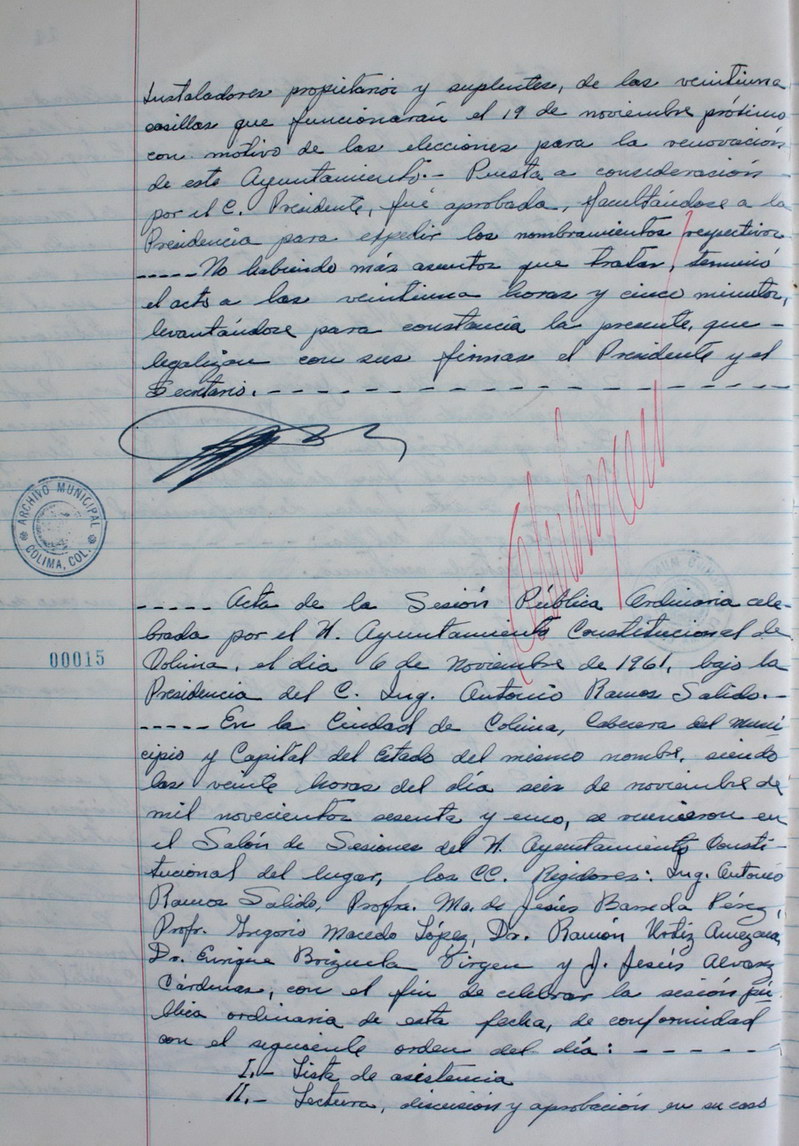 Instaladores propietarios y suplentes, de las veintiuna
casillas que funcionarán el 19 de noviembre próximo
con motivo de las elecciones para la renovación
de este Ayuntamiento.- Puesta a consideración -
por el C. Presidente, fué aprobada, facultándose a la
Presidencia para expedir los nombramientos respectivos
-----No habiendo más asuntos que tratar, terminó
el acto a las veintiuna horas y cinco minutos,
levantándose para constancia la presente, que -
legalizan con sus firmas el Presidente y el
Secretario. - - - - - - - - - - - - - - - - - -
ARCHIVO MUNICIPAL
COLIMA, COL.
00015
----- Acta de la Sesión Pública Ordinaria cele-
brada por el H. Ayuntamiento Constitucional de
Colima, el día 6 de Noviembre de 1961, bajo la
Presidencia del C. Ing. Antonio Ramos Salido.-
----- En la Ciudad de Colima, Cabecera del Muni-
cipio y Capital del Estado del mismo nombre, siendo
las veinte horas del día seis de noviembre de
mil novecientos sesenta y uno, se reunieron en
el Salón de Sesiones del H. Ayuntamiento Consti-
tucional del lugar, los CC. Regidores: Ing. Antonio
Ramos Salido, Profra. Ma. de Jesús Barreda Pérez,
Profr. Gregorio Macedo López, Dr. Ramón Ortiz
Dr. Enrique Brizuela Virgen y J. Jesús Alvarez
Cárdenas, con el fin de celebrar la sesión pú-
blica ordinaria de esta fecha, de conformidad
con el siguiente orden del día: - - - - -
I.- Lista de asistencia
II.- Lectura, discusión y aprobación en su caso